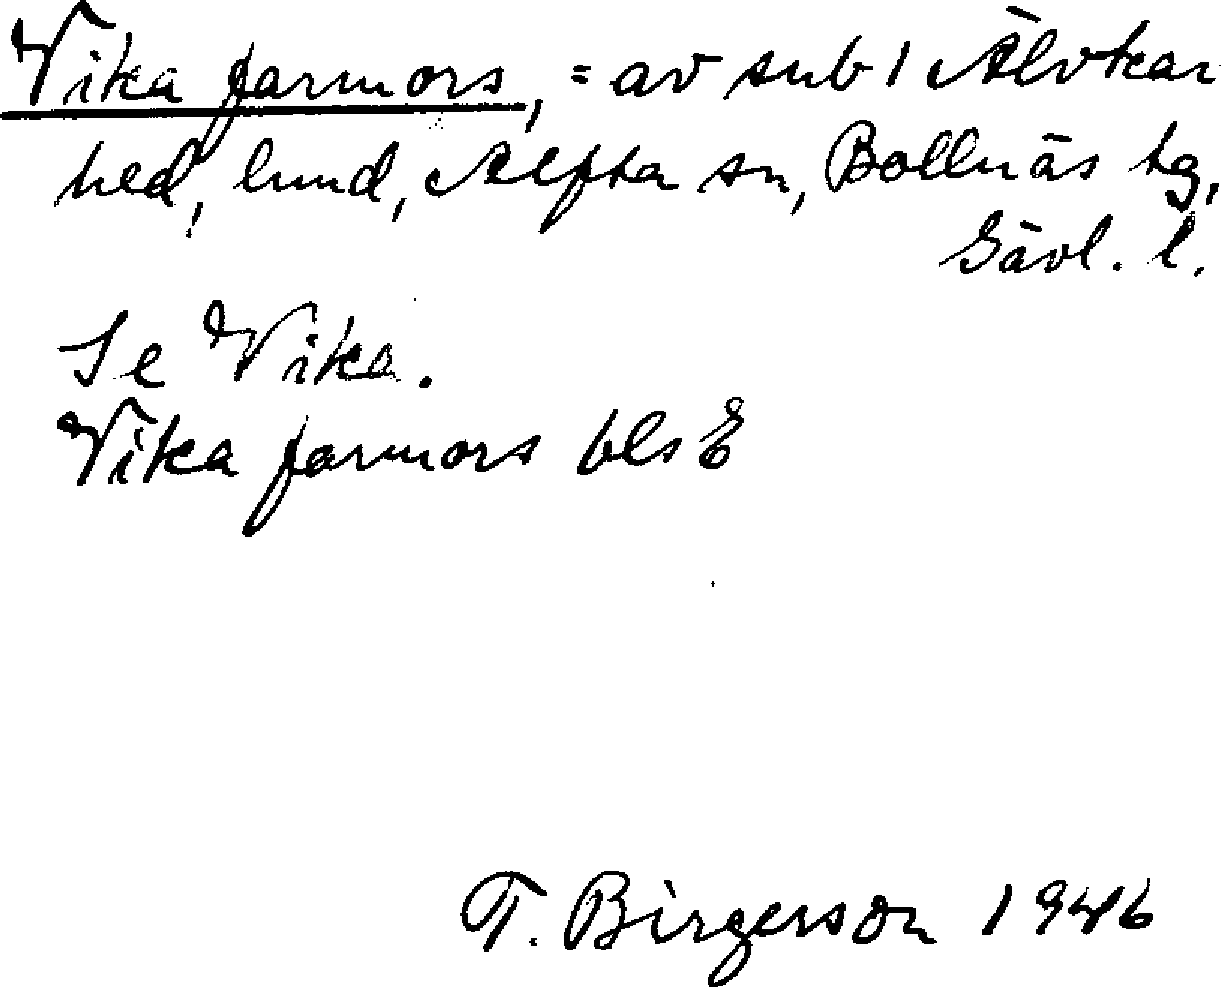 Vika farmors, = av sub 1 Älvkar
hed, lund, Alfta sn, Bollnäs tg,
Gävl. l.
Se Vika.
Vika farmors bls E
T. Birgerson 1946